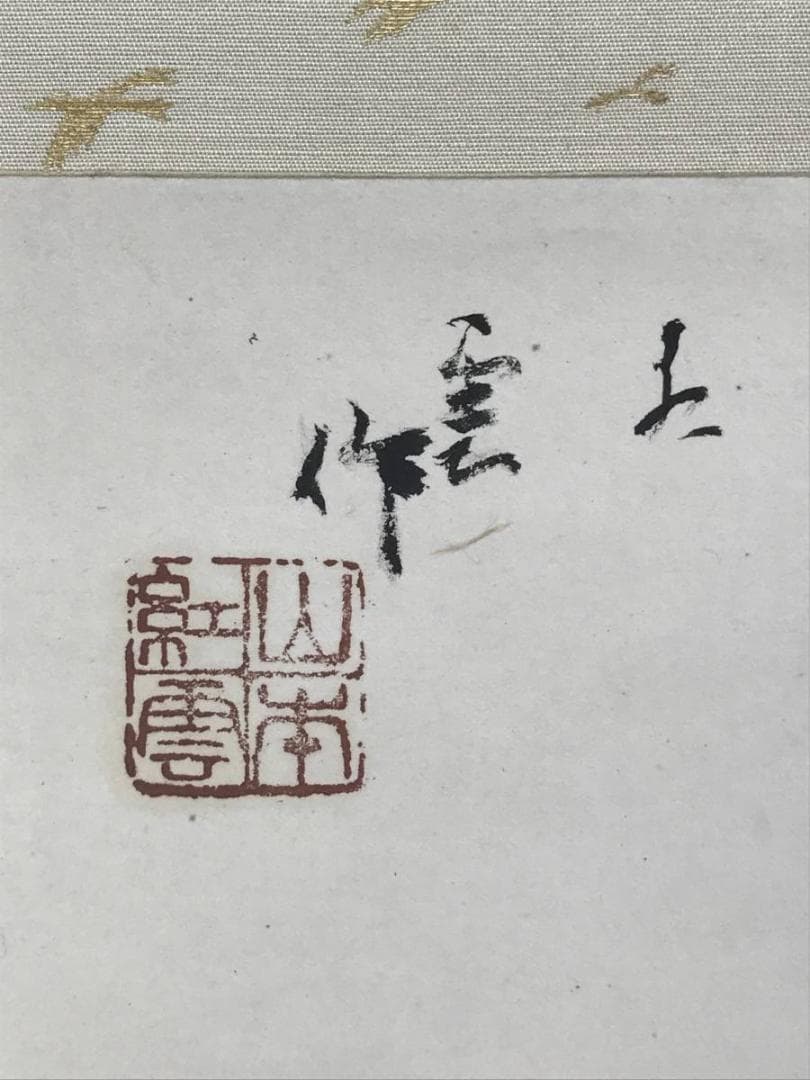 雲
作
山本
紅雲